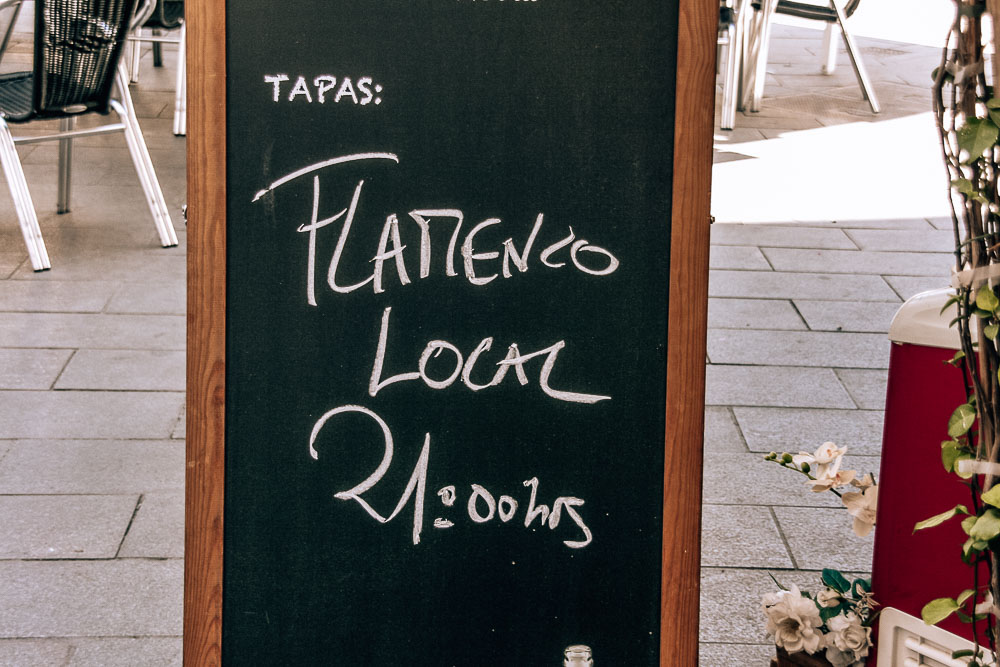 TAPAS:
FLAMENCO
LOCAL
21:00hrs